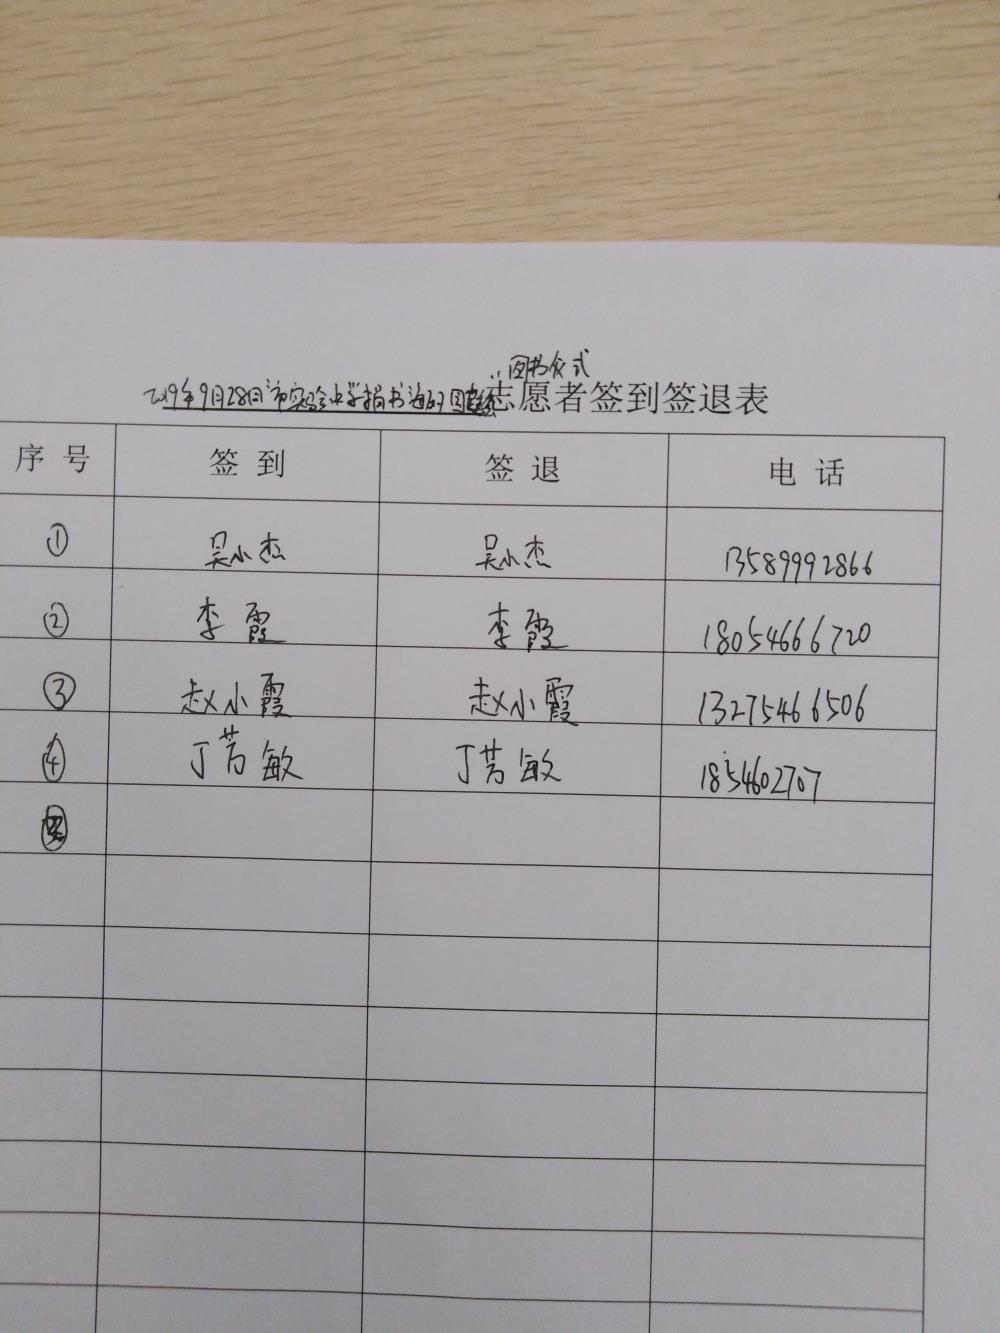 图书仪式
2019年9月28日市实验中学捐书 志愿者签到签退表
序号 签到 签退 电话
① 吴小杰 吴小杰 13589992866
② 李霞 李霞 18054666720
③ 赵小霞 赵小霞 13275466506
④ 丁芳敏 丁芳敏 1854602707